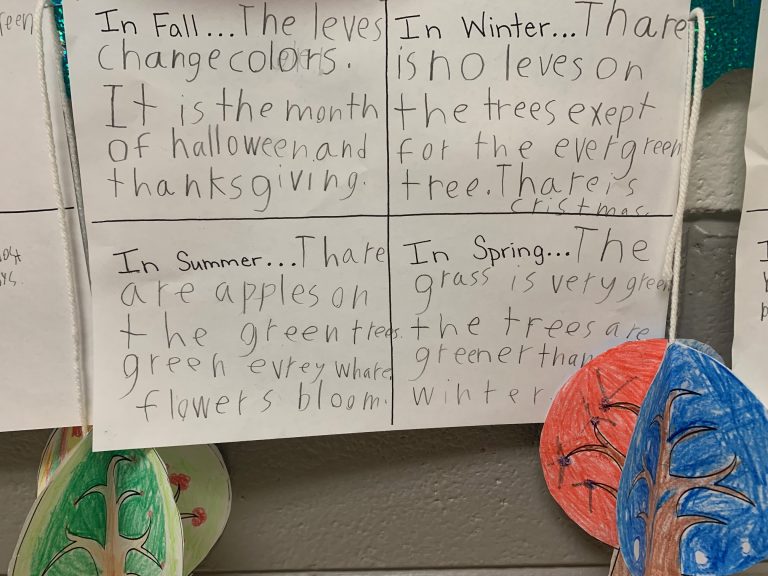 In Fall... The leves
change colors.
It is the month
of halloween and
thanksgiving.
In Winter... Thare
is no leves on
the trees exept
for the evergreen
tree. Thare is
cristmas.
In Summer... Thare
are apples on
the green trees.
green evrey whare
flowers bloom.
In Spring... The
grass is very green
the trees are
greener than
winter.